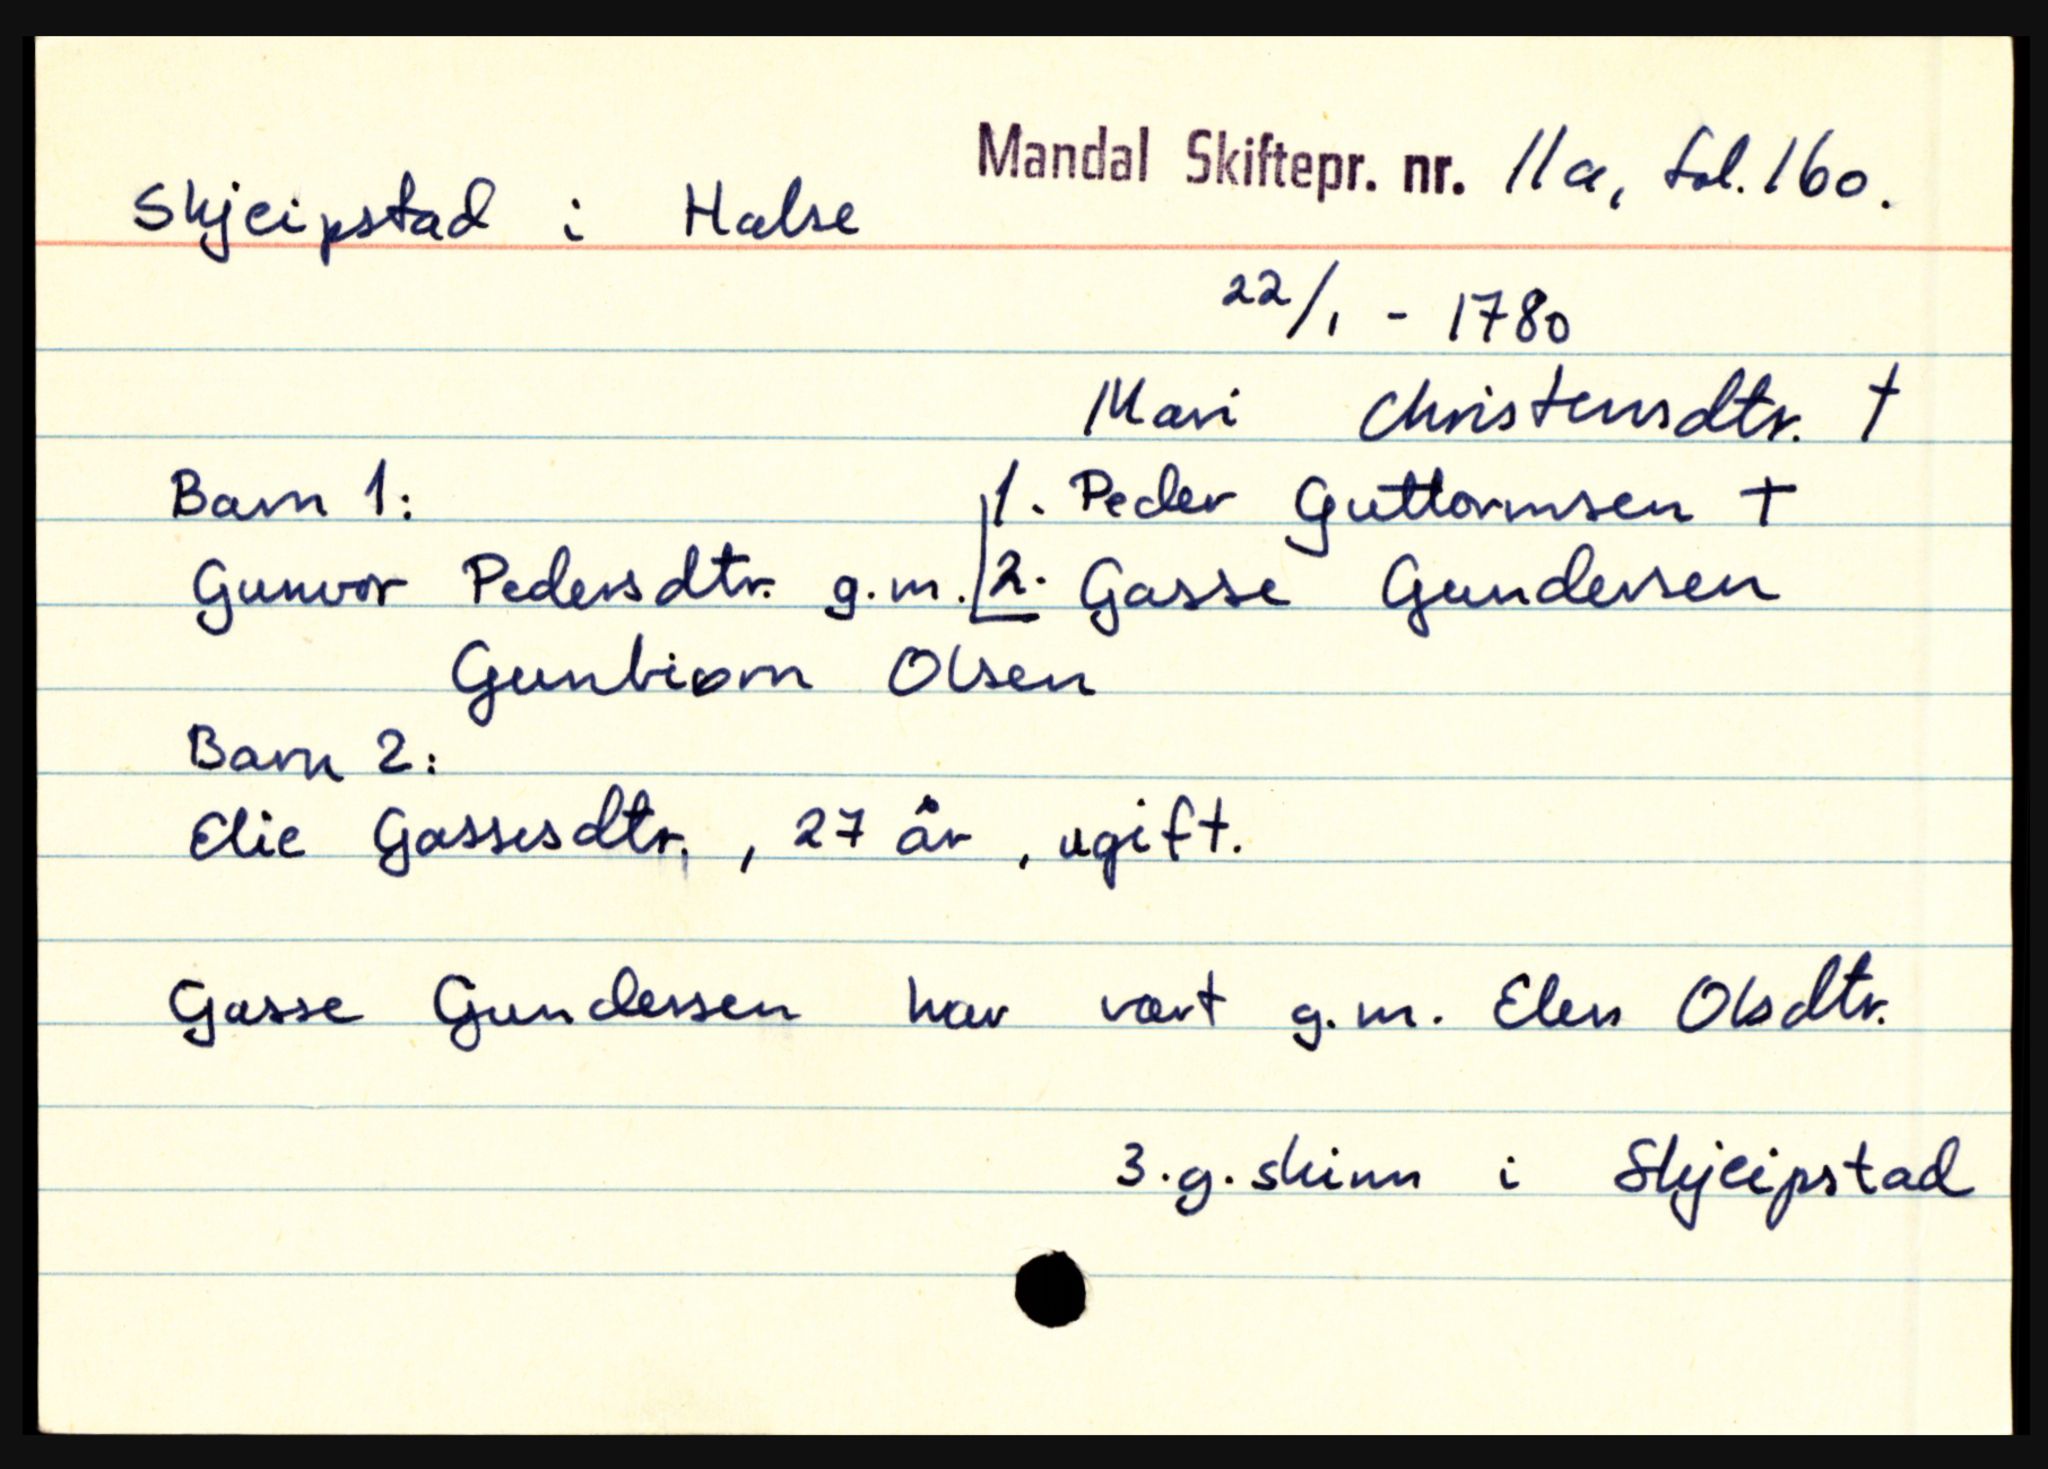 Mandal Skiftepr. nr. 11a, fol. 160.
Skjeipstad i Halse
22/1 - 1780
Mari Christensdtr. †
Barn 1: 1. Peder Guttormsen †
Gunvor Pedersdtr. g.m. 2. Gasse Gundersen
Gunbiorn Olsen
Barn 2:
Elie Gassesdtr., 27 år, ugift.
Gasse Gundersen har vært g.m. Elen Olsdtr.
3.g.skinn i Skjeipstad